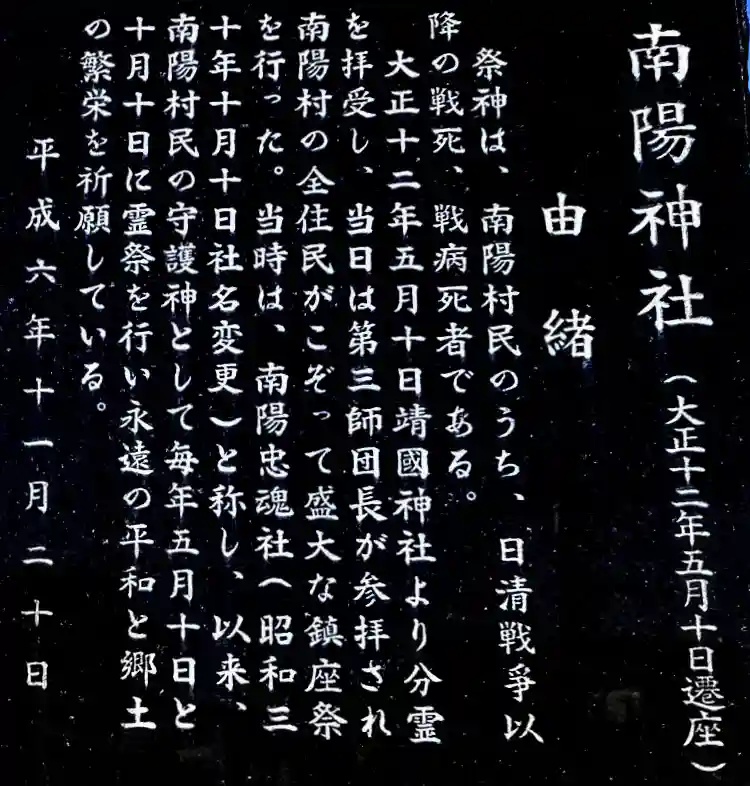 南陽神社（大正十二年五月十日遷座）
由緒
祭神は、南陽村民のうち、日清戦爭以
降の戦死、戦病死者である。
大正十二年五月十日靖國神社より分霊
を拝受し、当日は第三師団長が参拝され
南陽村の全住民がこぞって盛大な鎮座祭
を行った。当時は、南陽忠魂社（昭和三
十年十月十日社名変更）と称し、以来、
南陽村民の守護神として毎年五月十日と
十月十日に霊祭を行い永遠の平和と郷土
の繁栄を祈願している。
平成六年十一月二十日